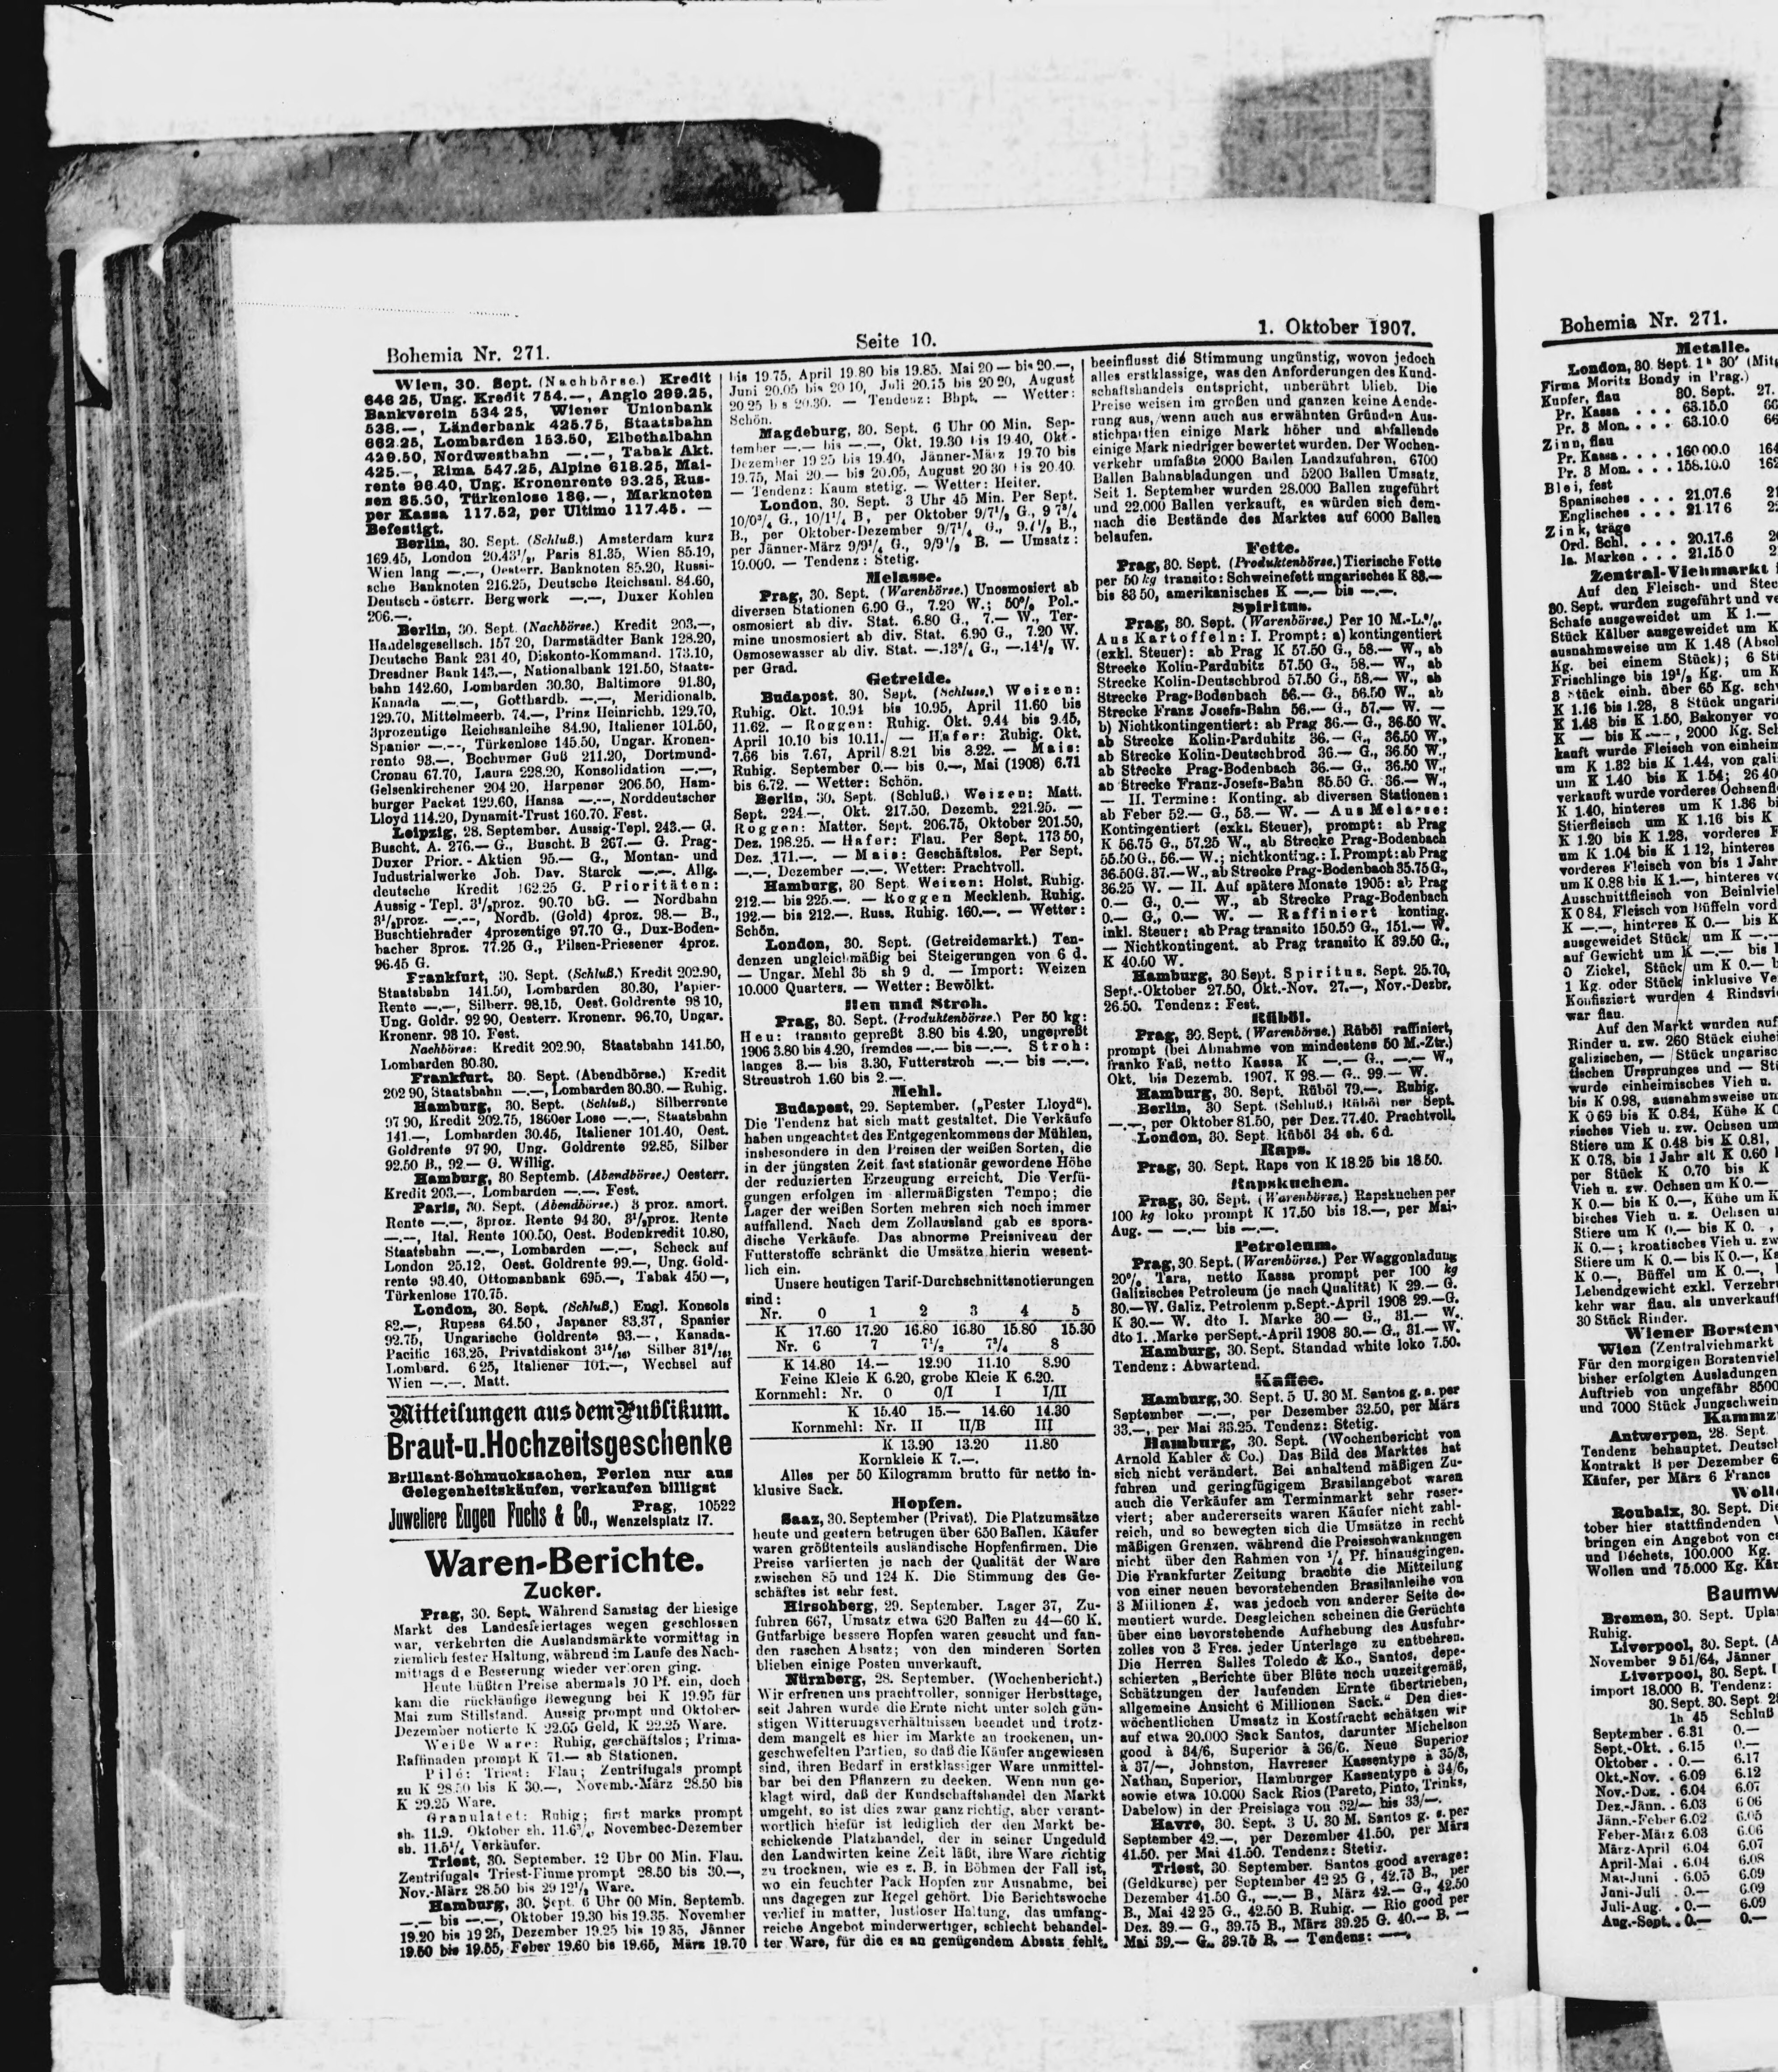 Bohemia Nr. 271.
Seite 10.
1. Oktober 1907.
Wien, 30. Sept. (Nachbörse.) Kredit
646 25, Ung. Kredit 754.—, Anglo 299.25,
Bankverein 534 25, Wiener Unionbank
538.—, Länderbank 425.75, Staatsbahn
662.25, Lombarden 153.50, Elbethalbahn
429.50, Nordwestbahn —.—, Tabak Akt.
425.—, Rima 547.25, Alpine 618.25, Mai-
rente 96.40, Ung. Kronenrente 93.25, Rus-
sen 85.50, Türkenlose 186.—, Marknoten
per Kassa 117.52, per Ultimo 117.45. —
Befestigt.
Berlin, 30. Sept. (Schluß.) Amsterdam kurz
169.45, London 20.43½, Paris 81.35, Wien 85.10,
Wien lang —.—, Oesterr. Banknoten 85.20, Russi-
sche Banknoten 216.25, Deutsche Reichsanl. 84.60,
Deutsch-österr. Bergwerk —.—, Duxer Kohlen
206.—.
Berlin, 30. Sept. (Nachbörse.) Kredit 203.—,
Handelsgesellsch. 157 20, Darmstädter Bank 128.20,
Deutsche Bank 231 40, Diskonto-Kommand. 173.10,
Dresdner Bank 143.—, Nationalbank 121.50, Staats-
bahn 142.60, Lombarden 30.30, Baltimore 91.80,
Kanada —.—, Gotthardb. —.—, Meridionalb.
129.70, Mittelmeerb. 74.—, Prinz Heinrichb. 129.70,
3prozentige Reichsanleihe 84.90, Italiener 101.50,
Spanier —.—, Türkenlose 145.50, Ungar. Kronen-
rente 93.—, Bochumer Guß 211.20, Dortmund-
Cronau 67.70, Laura 228.20, Konsolidation —.—,
Gelsenkirchener 204 20, Harpener 206.50, Ham-
burger Packet 129.60, Hansa —.—, Norddeutscher
Lloyd 114.20, Dynamit-Trust 160.70. Fest.
Leipzig, 28. September. Aussig-Tepl. 243.— G.
Buscht. A. 276.— G., Buscht. B 267.— G. Prag-
Duxer Prior.-Aktien 95.— G., Montan- und
Judustrialwerke Joh. Dav. Starck —.—. Allg.
deutsche Kredit 162.25 G. Prioritäten:
Aussig-Tepl. 3½proz. 90.70 bG. — Nordbahn
3½proz. —.—, Nordb. (Gold) 4proz. 98.— B.,
Buschtiehrader 4prozentige 97.70 G., Dux-Boden-
bacher 3proz. 77.25 G., Pilsen-Priesener 4proz.
96.45 G.
Frankfurt, 30. Sept. (Schluß.) Kredit 202.90,
Staatsbahn 141.50, Lombarden 30.30, Papier-
Rente —.—, Silberr. 98.15, Oest. Goldrente 98 10,
Ung. Goldr. 92 90, Oesterr. Kronenr. 96.70, Ungar.
Kronenr. 98 10. Fest.
Nachbörse: Kredit 202.90, Staatsbahn 141.50,
Lombarden 30.30.
Frankfurt, 30. Sept. (Abendbörse.) Kredit
202 90, Staatsbahn —.—, Lombarden 30.30. — Ruhig.
Hamburg, 30. Sept. (Schluß.) Silberrente
97 90, Kredit 202.75, 1860er Lose —.—, Staatsbahn
141.—, Lombarden 30.45, Italiener 101.40, Oest.
Goldrente 97 90, Ung. Goldrente 92.85, Silber
92.50 B., 92.— G. Willig.
Hamburg, 30 Septemb. (Abendbörse.) Oesterr.
Kredit 203.—, Lombarden —.—. Fest.
Paris, 30. Sept. (Abendbörse.) 3 proz. amort.
Rente —.—, 3proz. Rente 94 30, 3½proz. Rente
—.—, Ital. Rente 100.50, Oest. Bodenkredit 10.80,
Staatsbahn —.—, Lombarden —.—, Scheck auf
London 25.12, Oest. Goldrente 99.—, Ung. Gold-
rente 93.40, Ottomanbank 695.—, Tabak 450 —,
Türkenlose 170.75.
London, 30. Sept. (Schluß.) Engl. Konsols
82.—, Rupees 64.50, Japaner 83.37, Spanier
92.75, Ungarische Goldrente 93.—, Kanada-
Pacific 163.25, Privatdiskont Silber
Lombard. 6 25, Italiener 101.—, Wechsel auf
Wien —.—. Matt.
Mitteilungen aus dem Publikum.
Braut-u.Hochzeitsgeschenke
Brillant-Schmucksachen, Perlen nur aus
Gelegenheitskäufen, verkaufen billigst
Juweliere Eugen Fuchs & Co., Prag, 10522
Wenzelsplatz 17.
Waren-Berichte.
Zucker.
Prag, 30. Sept. Während Samstag der hiesige
Markt des Landesfeiertages wegen geschlossen
war, verkehrten die Auslandsmärkte vormittag in
ziemlich fester Haltung, während im Laufe des Nach-
mittags d e Besserung wieder verloren ging.
Heute büßten Preise abermals 10 Pf. ein, doch
kam die rückläufige Bewegung bei K 19.95 für
Mai zum Stillstand. Aussig prompt und Oktober-
Dezember notierte K 22.05 Geld, K 22.25 Ware.
Weiße Ware: Ruhig, geschäftslos; Prima-
Raffinaden prompt K 71.— ab Stationen.
Pilé: Triest: Flau; Zentrifugals prompt
zu K 28.50 bis K 30.—, Novemb.-März 28.50 bis
K 29.25 Ware.
Granulatet: Ruhig; first marks prompt
sh. 11.9. Oktober sh. 11.6¾, Novembec-Dezember
sh. 11.5¼ Verkäufer.
Triest, 30. September. 12 Uhr 00 Min. Flau.
Zentrifugals Triest-Fiume prompt 28.50 bis 30.—,
Nov.-März 28.50 bis 29 12½ Ware.
Hamburg, 30. Sept. 6 Uhr 00 Min. Septemb.
—.— bis —.—, Oktober 19.30 bis 19.35. November
19.20 bis 19 25, Dezember 19.25 bis 19 35, Jänner
19.50 bis 19.55, Feber 19.60 bis 19.65, März 19.70
bis 19.75, April 19.80 bis 19.85. Mai 20 — bis 20.—,
Juni 20.05 bis 20 10, Juli 20.15 bis 20 20, August
20 25 b s 20.30. — Tendenz: Bhpt. — Wetter:
Schön.
Magdeburg, 30. Sept. 6 Uhr 00 Min. Sep-
tember —.— bis —.—, Okt. 19.30 bis 19 40, Okt.-
Dezember 19 25 bis 19.40, Jänner-März 19.70 bis
19.75, Mai 20.— bis 20.05, August 20 30 bis 20.40.
— Tendenz: Kaum stetig. — Wetter: Heiter.
London, 30. Sept. 3 Uhr 45 Min. Per Sept.
10/0¾ G., 10/1¼ B, per Oktober 9/7½ G., 9 7¾
B., per Oktober-Dezember 9/7¼ G., 9.7½ B.,
per Jänner-März 9/9¼ G., 9/9½ B. — Umsatz:
10.000. — Tendenz: Stetig.
Melasse.
Prag, 30. Sept. (Warenbörse.) Unosmosiert ab
diversen Stationen 6.90 G., 7.20 W.; 50% Pol.-
osmosiert ab div. Stat. 6.80 G., 7.— W., Ter-
mine unosmosiert ab div. Stat. 6.90 G., 7.20 W.
Osmosewasser ab div. Stat. —.13¾ G., —.14½ W.
per Grad.
Getreide.
Budapest, 30. Sept. (Schluss.) Weizen:
Ruhig. Okt. 10.94 bis 10.95, April 11.60 bis
11.62. — Roggen: Ruhig. Okt. 9.44 bis 9.45,
April 10.10 bis 10.11. — Hafer: Ruhig. Okt.
7.66 bis 7.67, April 8.21 bis 8.22. — Mais:
Ruhig. September 0.— bis 0.—, Mai (1908) 6.71
bis 6.72. — Wetter: Schön.
Berlin, 30. Sept. (Schluß.) Weizen: Matt.
Sept. 224.—, Okt. 217.50, Dezemb. 221.25. —
Roggen: Matter. Sept. 206.75, Oktober 201.50,
Dez. 198.25. — Hafer: Flau. Per Sept. 173 50,
Dez. 171.—. — Mais: Geschäftslos. Per Sept.
—.—, Dezember —.—. Wetter: Prachtvoll.
Hamburg, 30 Sept. Weizen: Holst. Ruhig.
212.— bis 225.—. — Roggen Mecklenh. Ruhig.
192.— bis 212.—. Russ. Ruhig. 160.—. — Wetter:
Schön.
London, 30. Sept. (Getreidemarkt.) Ten-
denzen ungleichmäßig bei Steigerungen von 6 d.
— Ungar. Mehl 35 sh 9 d. — Import: Weizen
10.000 Quarters. — Wetter: Bewölkt.
Heu und Stroh.
Prag, 30. Sept. (Produktenbörse.) Per 50 kg:
Heu: transito gepreßt 3.80 bis 4.20, ungepreßt
1906 3.80 bis 4.20, fremdes —.— bis —.—. Stroh:
langes 3.— bis 3.30, Futterstroh —.— bis —.—.
Streustroh 1.60 bis 2.—.
Mehl.
Budapest, 29. September. („Pester Lloyd“).
Die Tendenz hat sich matt gestaltet. Die Verkäufe
haben ungeachtet des Entgegenkommens der Mühlen,
insbesondere in den Preisen der weißen Sorten, die
in der jüngsten Zeit fast stationär gewordene Höhe
der reduzierten Erzeugung erreicht. Die Verfü-
gungen erfolgen im allermäßigsten Tempo; die
Lager der weißen Sorten mehren sich noch immer
auffallend. Nach dem Zollausland gab es spora-
dische Verkäufe. Das abnorme Preisniveau der
Futterstoffe schränkt die Umsätze hierin wesent-
lich ein.
Unsere heutigen Tarif-Durchschnittsnotierungen
sind:
Nr. 0 1 2 3 4 5
K 17.60 17.20 16.80 16.30 15.80 15.30
Nr. 6 7 7½ 7¾ 8
K 14.80 14.— 12.90 11.10 8.90
Feine Kleie K 6.20, grobe Kleie K 6.20.
Kornmehl: Nr. 0 0/I I I/II
K 15.40 15.— 14.60 14.30
Kornmehl: Nr. II II/B III
K 13.90 13.20 11.80
Kornkleie K 7.—.
Alles per 50 Kilogramm brutto für netto in-
klusive Sack.
Hopfen.
Saaz, 30. September (Privat). Die Platzumsätze
heute und gestern betrugen über 650 Ballen. Käufer
waren größtenteils ausländische Hopfenfirmen. Die
Preise variierten je nach der Qualität der Ware
zwischen 85 und 124 K. Die Stimmung des Ge-
schäftes ist sehr fest.
Hirschberg, 29. September. Lager 37, Zu-
fuhren 667, Umsatz etwa 620 Ballen zu 44—60 K.
Gutfarbige bessere Hopfen waren gesucht und fan-
den raschen Absatz; von den minderen Sorten
blieben einige Posten unverkauft.
Nürnberg, 28. September. (Wochenbericht.)
Wir erfreuen uns prachtvoller, sonniger Herbsttage,
seit Jahren wurde die Ernte nicht unter solch gün-
stigen Witterungsverhältnissen beendet und trotz-
dem mangelt es hier im Markte an trockenen, un-
geschwefelten Partien, so daß die Käufer angewiesen
sind, ihren Bedarf in erstklassiger Ware unmittel-
bar bei den Pflanzern zu decken. Wenn nun ge-
klagt wird, daß der Kundschaftshandel den Markt
umgeht, so ist dies zwar ganz richtig, aber verant-
wortlich hiefür ist lediglich der den Markt be-
schickende Platzhandel, der in seiner Ungeduld
den Landwirten keine Zeit läßt, ihre Ware richtig
zu trocknen, wie es z. B. in Böhmen der Fall ist,
wo ein feuchter Pack Hopfen zur Ausnahme, bei
uns dagegen zur Regel gehört. Die Berichtswoche
verlief in matter, lustloser Haltung, das umfang-
reiche Angebot minderwertiger, schlecht behandel-
ter Ware, für die es an genügendem Absatz fehlt,
beeinflusst die Stimmung ungünstig, wovon jedoch
alles erstklassige, was den Anforderungen des Kund-
schaftshandels entspricht, unberührt blieb. Die
Preise weisen im großen und ganzen keine Aende-
rung aus, wenn auch aus erwähnten Gründen Aus-
stichpartien einige Mark höher und abfallende
einige Mark niedriger bewertet wurden. Der Wochen-
verkehr umfaßte 2000 Ballen Landzufuhren, 6700
Ballen Bahnabladungen und 5200 Ballen Umsatz.
Seit 1. September wurden 28.000 Ballen zugeführt
und 22.000 Ballen verkauft, es würden sich dem-
nach die Bestände des Marktes auf 6000 Ballen
belaufen.
Fette.
Prag, 30. Sept. (Produktenbörse.) Tierische Fette
per 50 kg transito: Schweinefett ungarisches K 83.—
bis 83 50, amerikanisches K —.— bis —.—.
Spiritus.
Prag, 30. Sept. (Warenbörse.) Per 10 M.-L.%.
Aus Kartoffeln: I. Prompt: a) kontingentiert
(exkl. Steuer): ab Prag K 57.50 G., 58.— W., ab
Strecke Kolin-Pardubitz 57.50 G., 58.— W., ab
Strecke Kolin-Deutschbrod 57.50 G., 58.— W., ab
Strecke Prag-Bodenbach 56.— G., 56.50 W., ab
Strecke Franz Josefs-Bahn 56.— G., 57.— W. —
b) Nichtkontingentiert: ab Prag 36.— G., 36.50 W.
ab Strecke Kolin-Pardubitz 36.— G., 36.50 W.,
ab Strecke Kolin-Deutschbrod 36.— G., 36.50 W.,
ab Strecke Prag-Bodenbach 36.— G., 36.50 W.,
ab Strecke Franz-Josefs-Bahn 35.50 G. 36.— W.,
— II. Termine: Konting. ab diversen Stationen:
ab Feber 52.— G., 53.— W. — Aus Melasse:
Kontingentiert (exkl. Steuer), prompt: ab Prag
K 56.75 G., 57.25 W., ab Strecke Prag-Bodenbach
55.50 G., 56.— W.; nichtkonting.: I. Prompt: ab Prag
36.50 G. 37.— W., ab Strecke Prag-Bodenbach 35.75 G.,
36.25 W. — II. Auf spätere Monate 1905: ab Prag
0.— G., 0.— W., ab Strecke Prag-Bodenbach
0.— G., 0.— W. — Raffiniert konting.
inkl. Steuer: ab Prag transito 150.50 G., 151.— W.
— Nichtkontingent. ab Prag transito K 39.50 G.,
K 40.50 W.
Hamburg, 30 Sept. Spiritus. Sept. 25.70,
Sept.-Oktober 27.50, Okt.-Nov. 27.—, Nov.-Dezbr.
26.50. Tendenz: Fest.
Rüböl.
Prag, 30. Sept. (Warenbörse.) Rüböl raffiniert,
prompt (bei Abnahme von mindestens 50 M.-Ztr.)
franko Faß, netto Kassa K —.— G., —.— W.,
Okt. bis Dezemb. 1907. K 98.— G.. 99.— W.
Hamburg, 30. Sept. Rüböl 79.—. Ruhig.
Berlin, 30 Sept. (Schluß.) Rüböl per Sept.
—.—, per Oktober 81.50, per Dez. 77.40. Prachtvoll.
London, 30. Sept. Rüböl 34 sh. 6d.
Raps.
Prag, 30. Sept. Raps von K 18.25 bis 18.50.
Rapskuchen.
Prag, 30. Sept. (Warenbörse.) Rapskuchen per
100 kg loko prompt K 17.50 bis 18.—, per Mai-
Aug. — —.— bis —.—.
Petroleum.
Prag, 30. Sept. (Warenbörse.) Per Waggonladung
20% Tara, netto Kassa prompt per 100 kg
Galizisches Petroleum (je nach Qualität) K 29.— G.
30.—W. Galiz. Petroleum p. Sept.-April 1908 29.—G.
K 30.— W. dto I. Marke 30.— G., 31.— W.
dto 1. Marke per Sept.-April 1908 30.— G., 31.— W.
Hamburg, 30. Sept. Standad white loko 7.50.
Tendenz: Abwartend.
Kaffee.
Hamburg, 30. Sept. 5 U. 30 M. Santos g. a. per
September —.—, per Dezember 32.50, per März
33.—, per Mai 33.25. Tendenz: Stetig.
Hamburg, 30. Sept. (Wochenbericht von
Arnold Kahler & Co.) Das Bild des Marktes hat
sich nicht verändert. Bei anhaltend mäßigen Zu-
fuhren und geringfügigem Brasilangebot waren
auch die Verkäufer am Terminmarkt sehr reser-
viert; aber andererseits waren Käufer nicht zahl-
reich, und so bewegten sich die Umsätze in recht
mäßigen Grenzen, während die Preisschwankungen
nicht über den Rahmen von ¼ Pf. hinausgingen.
Die Frankfurter Zeitung brachte die Mitteilung
von einer neuen bevorstehenden Brasilanleihe von
3 Millionen £, was jedoch von anderer Seite de-
mentiert wurde. Desgleichen scheinen die Gerüchte
über eine bevorstehende Aufhebung des Ausfuhr-
zolles von 3 Frcs. jeder Unterlage zu entbehren.
Die Herren Salles Toledo & Ko., Santos, depe-
schierten „Berichte über Blüte noch unzeitgemäß,
Schätzungen der laufenden Ernte übertrieben,
allgemeine Ansicht 6 Millionen Sack.“ Den dies-
wöchentlichen Umsatz in Kostfracht schätzen wir
auf etwa 20.000 Sack Santos, darunter Michelson
good à 34/6, Superior à 36/6. Neue Superior
à 37/—, Johnston, Havreser Kassentype à 35/3,
Nathan, Superior, Hamburger Kassentype à 34/6,
sowie etwa 10.000 Sack Rios (Pareto, Pinto, Trinks,
Dabelow) in der Preislage von 32/— bis 33/—.
Havre, 30. Sept. 3 U. 30 M. Santos g. a. per
September 42.—, per Dezember 41.50, per März
41.50. per Mai 41.50. Tendenz: Stetig.
Triest, 30. September. Santos good average:
(Geldkurse) per September 42 25 G, 42.75 B., per
Dezember 41.50 G., —.— B., März 42.— G., 42.50
B., Mai 42 25 G., 42.50 B. Ruhig. — Rio good per
Dez. 39.— G., 39.75 B., März 39.25 G. 40.— B. —
Mai 39.— G., 39.75 B. — Tendenz: —.—.
Bohemia Nr. 271.
Metalle.
London, 30. Sept. 1h 30' (Mit
Firma Moritz Bondy in Prag.)
Kupfer, flau 30. Sept. 27.
Pr. Kassa . . . 63.15.0
Pr. 3 Mon. . . . 63.10.0
Zinn, flau
Pr. Kassa . . . . 160 00.0
Pr. 3 Mon. . . . 158.10.0
Blei, fest
Spanisches . . . 21.07.6
Englisches . . . 21.17 6
Zink, träge
Ord. Schl. . . . 20.17.6
la. Marken . . . 21.15 0
Zentral-Viehmarkt
Auf den Fleisch- und Stec
30. Sept. wurden zugeführt und ve
Schafe ausgeweidet um K 1.—
Stück Kälber ausgeweidet um K
ausnahmsweise um K 1.48 (Absch
Kg. bei einem Stück); 6 St
Frischlinge bis 19½ Kg. um K
8 Stück einh. über 65 Kg. schw
K 1.16 bis 1.28, 8 Stück ungari
K 1.48 bis K 1.50, Bakonyer vo
K — bis K —.—, 2000 Kg. Sch
kauft wurde Fleisch von einheim
um K 1.32 bis K 1.44, von gali
um K 1.40 bis K 1.54; 26 40
verkauft wurde vorderes Ochsenfl
K 1.40, hinteres um K 1.36 bi
Stierfleisch um K 1.16 bis K
K 1.20 bis K 1.28, vorderes F
um K 1.04 bis K 1.12, hinteres
vorderes Fleisch von bis 1 Jahr
um K 0.88 bis K 1.—, hinteres vo
Ausschnittfleisch von Beinlvieh
K 0 84, Fleisch von Büffeln vord
K —.—, hinteres K 0.— bis K
ausgeweidet Stück um K —.—
auf Gewicht um K —.— bis
0 Zickel, Stück um K 0.— b
1 Kg. oder Stück inklusive Ve
Konfisziert wurden 4 Rindsvi
war flau.
Auf den Markt wurden auf
Rinder u. zw. 260 Stück einhei
galizischen, — Stück ungarisc
tischen Ursprunges und — St
wurde einheimisches Vieh u.
bis K 0.98, ausnahmsweise um
K 0 69 bis K 0.84, Kühe K 0
zisches Vieh u. zw. Ochsen um
Stiere um K 0.48 bis K 0.81,
K 0.78, bis 1 Jahr alt K 0.60
per Stück K 0.70 bis K
Vieh u. zw. Ochsen um K 0.—
K 0.— bis K 0.—, Kühe um K
bisches Vieh u. z. Ochsen u
Stiere um K 0.— bis K 0. ,
K 0.—; kroatisches Vieh u. zw
Stiere um K 0.— bis K 0.—, K
K 0.—, Büffel um K 0.—,
Lebendgewicht exkl. Verzehr
kehr war flau, als unverkauft
30 Stück Rinder.
Wiener Borstenv
Wien (Zentralviehmarkt
Für den morgigen Borstenvieh
bisher erfolgten Ausladungen
Auftrieb von ungefähr 8500
und 7000 Stück Jungschwein
Kammz
Antwerpen, 28. Sept.
Tendenz behauptet. Deutsch
Kontrakt B per Dezember 6
Käufer, per März 6 Francs
Woll
Roubaix, 30. Sept. Die
tober hier stattfindenden
bringen ein Angebot von c
und Déchets, 100.000 Kg.
Wollen und 75.000 Kg. Kä
Baumw
Bremen, 30. Sept. Upla
Ruhig.
Liverpool, 30. Sept. (A
November 9 51/64, Jänner
Liverpool, 30. Sept.
import 18.000 B. Tendenz:
30. Sept. 30. Sept. 2
1h 45 Schluß
September . 6.31 0.—
Sept.-Okt. . 6.15 0.—
Oktober . . 0.— 6.17
Okt.-Nov. . 6.09 6.12
Nov.-Dez. . 6.04 6.07
Dez.-Jänn. . 6.03 6 06
Jänn.-Feber 6.02 6.05
Feber-März 6.03 6.06
März-April 6.04 6.07
April-Mai . 6.04 6.08
Mai-Juni . 6.05 6.09
Juni-Juli . 0.— 6.09
Juli-Aug. . 0.— 6.09
Aug.-Sept. . 0.— 0.—